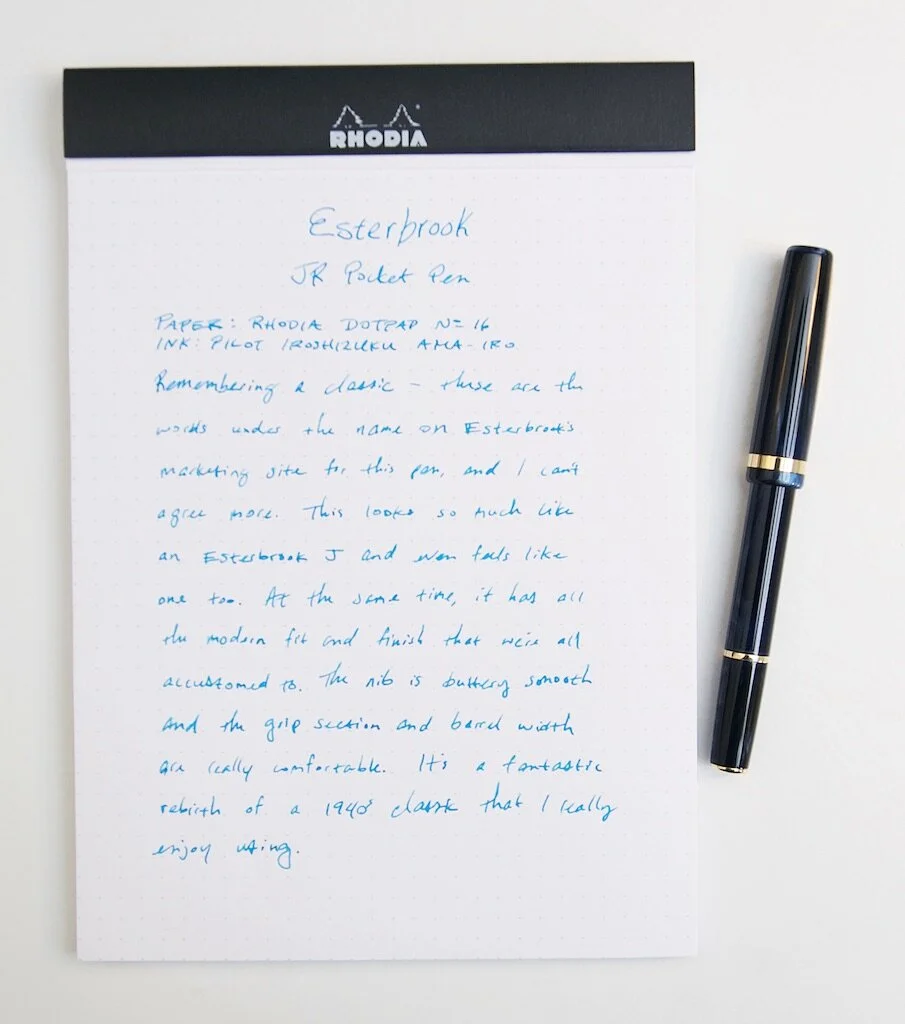 RHODIA
Esterbrook
JR Pocket Pen
PAPER: RHODIA DOTPAD Nº 16
INK: PILOT IROSHIZUKU AMA-IRO
Remembering a classic – these are the
words under the name on Esterbrook's
marketing site for this pen, and I can't
agree more. This looks so much like
an Esterbrook J and even feels like
one too. At the same time, it has all
the modern fit and finish that we're all
accustomed to. The nib is buttery smooth
and the grip section and barrel width
are really comfortable. It's a fantastic
rebirth of a 1940's classic that I really
enjoy using.